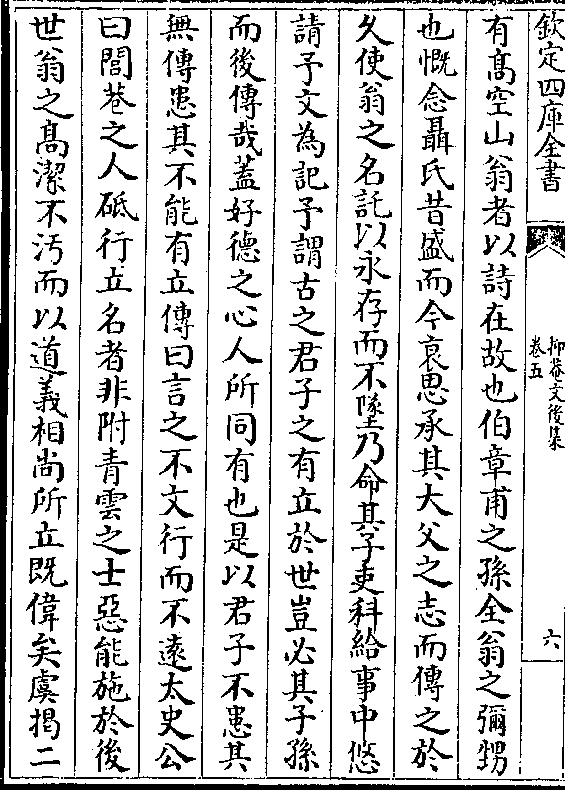 欽定四庫全書
抑菴文後集
卷五
六
有髙空山翁者以詩在故也伯章甫之孫全翁之彌甥
也慨念聶氏昔盛而今衰思承其大父之志而傳之於
乆使翁之名託以永存而不墜乃命其子吏科給事中悠
請予文為記予謂古之君子之有立於世豈必其子孫
而後傳哉葢好德之心人所同有也是以君子不患其
無傳患其不能有立傳曰言之不文行而不逺太史公
曰閭巷之人砥行立名者非附青雲之士惡能施於後
世翁之髙潔不汚而以道義相尚所立既偉矣虞揭二